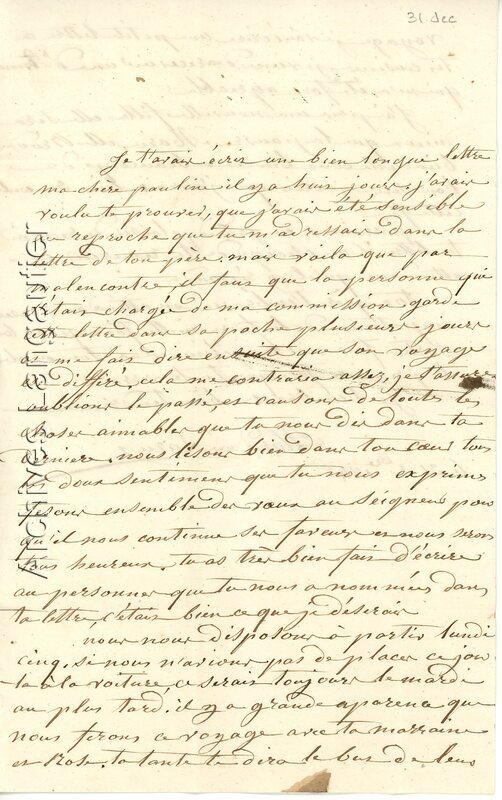 31 dec
Je t'avais écrit une bien longue lettre
ma chère pauline il y a huit jours, j'avais
voulu te prouver, que j'avais été sensible
au reproche que tu m'adressais dans la
lettre de ton père, mais voila que par
malencontre, il faut que la personne qui
s'était chargée de ma commission garde
cette lettre dans sa poche plusieurs jours
et me fait dire ensuite que son voyage
est différé, cela me contraria assez, je t'assure
oublions le passé, et causons de toutes les
choses aimables que tu nous dis dans ta
derniere, nous lisons bien dans ton cœur tous
les doux sentimens que tu nous exprimes
fesons ensemble des vœux au Seigneur pour
qu'il nous continue ses faveurs et nous serons
tous heureux. tu as tres bien fait d'écrire
au personnes que tu nous a nommées dans
ta lettre, c'était bien ce que je désirais
nous nous disposons a partir lundi
cinq, si nous n'avions pas de places ce jour
la à la voiture, ce serait toujours le mardi
au plus tard, il y a grande aparence que
nous ferons ce voyage avec ta marraine
et Rose. ta tante te dira le but de leur
Archives Largantier